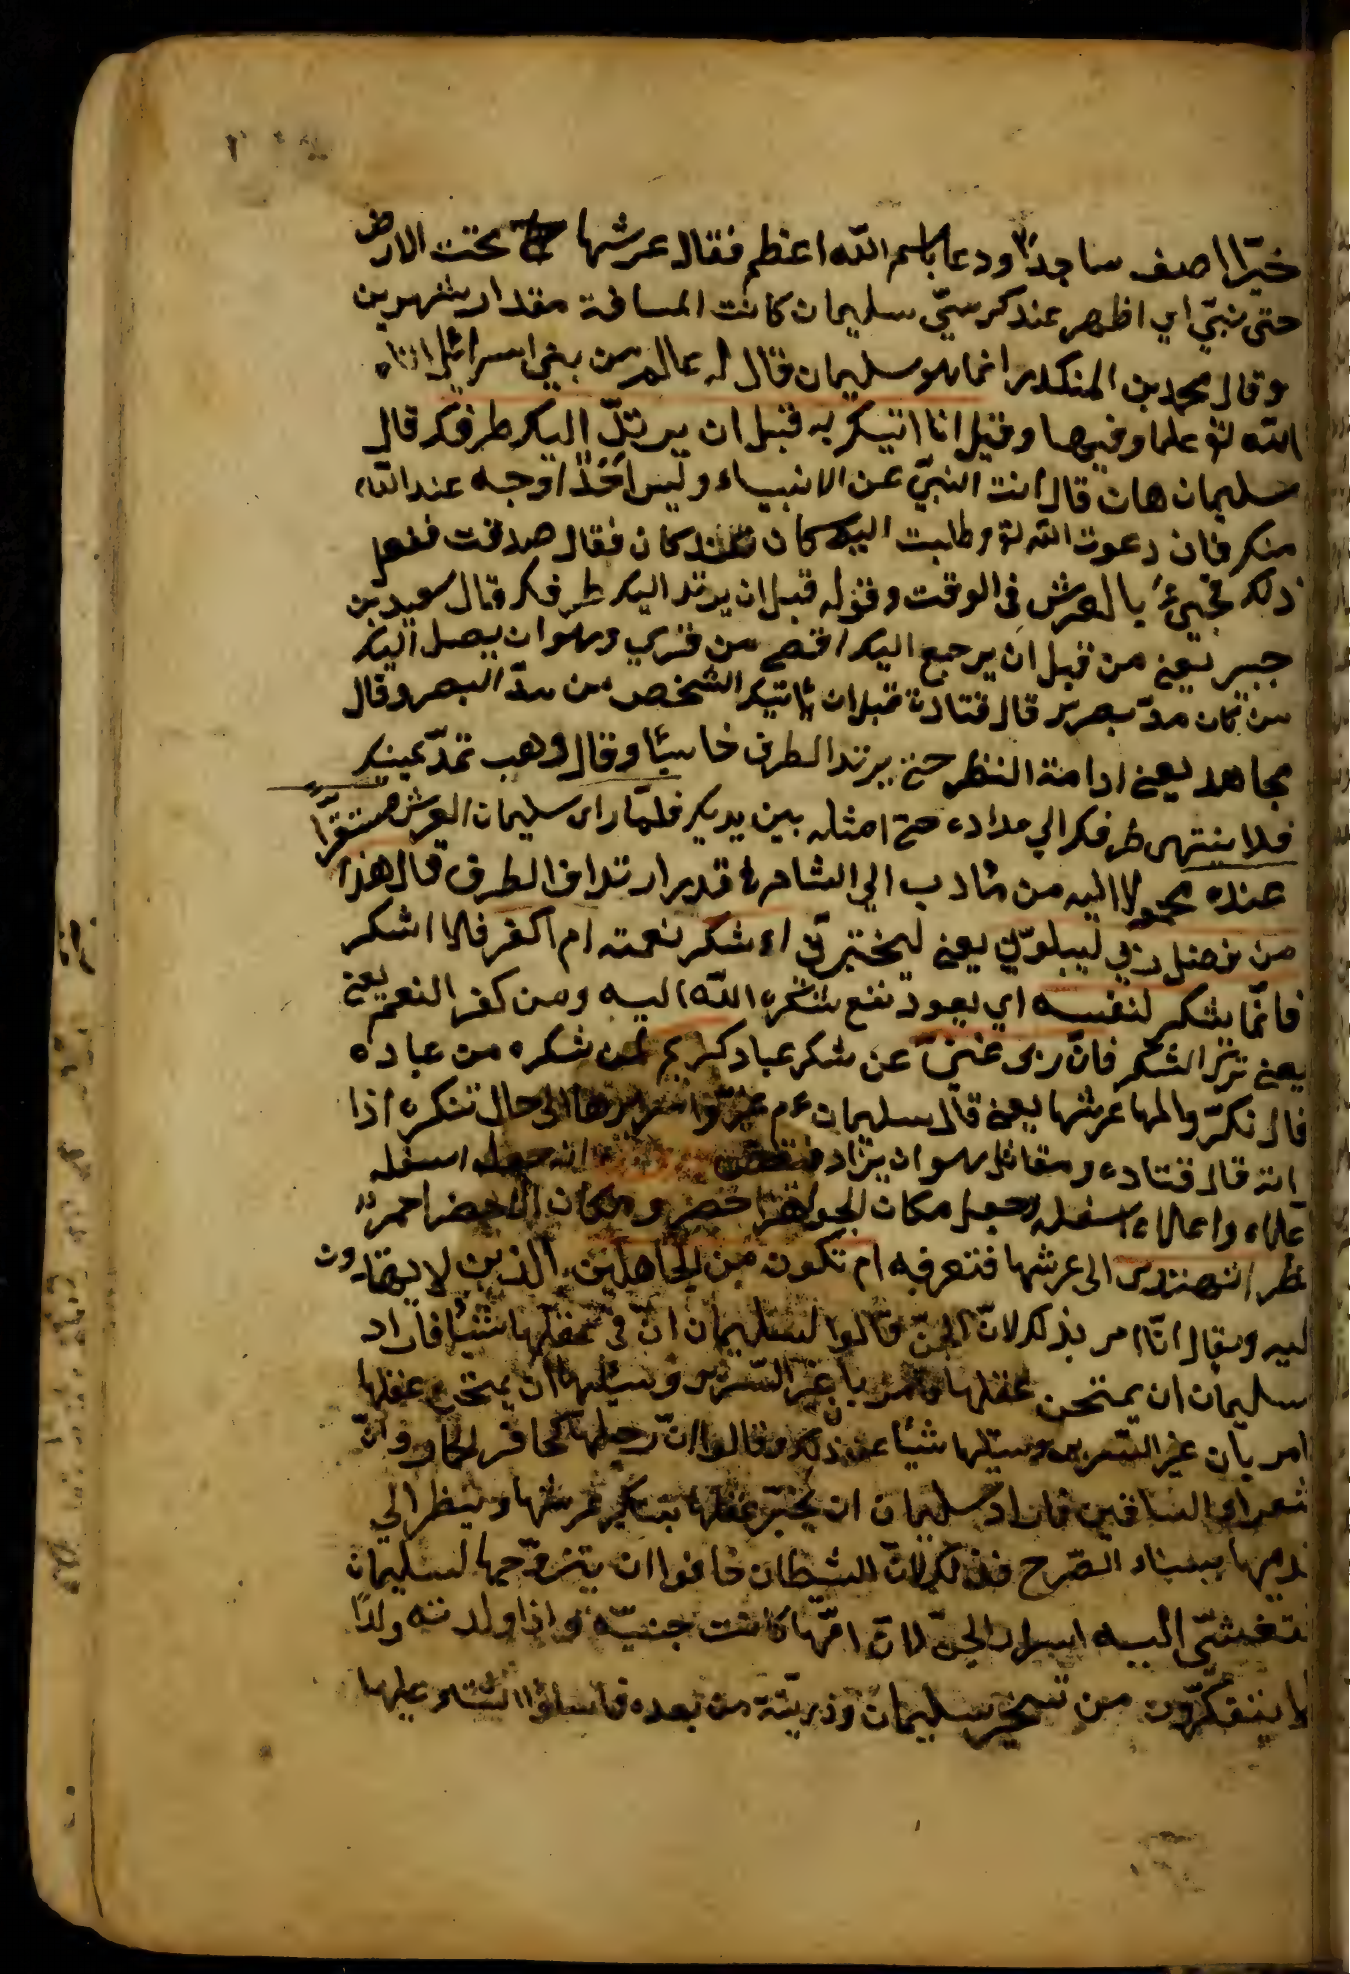 خرّ اصف ساجدًا ودعا باسم الله اعظم فقال عرشها تحت الارض
حتى نبيّ اي اظهر عند كرسيّ سليمان كانت المسافة مقدار شهرين
وقال محمد بن المنكدر انما هو سليمان قال له عالم من بني اسرائيل اتاه
الله علما وفيها وقيل انا اتيك به قبل ان يرتدّ اليك طرفك قال
سليمان هات قال انت النبيّ عن الانبياء وليس احد اوجه عند الله
منك فان دعوت الله وطلبت اليه كان عندك كان فقال صدقت ففعل
ذلك فجيء بالعرش في الوقت وقوله قبل ان يرتد اليك طرفك قال سعيد بن
جبير يعني من قبل ان يرجع اليك اقصى من تري وهو ان يصل اليك
من كان مدّ بصرك قال قتادة قبل ان ياتيك الشخص من مدّ البصر وقال
مجاهد يعني ادامة النظر حتى يرتد الطرف خاسئا وقال وهب تمدّ عينيك
فلا ينتهى طرفك الي مداده حتى امثله بين يديك فلمّا راى سليمان العرش مستقرّا
عنده محمولا اليه من مأدب الي الشام في قدر ارتداف الطرف قال هذا
من فضل ربي ليبلوني يعني ليختبرني ءاشكر نعمته ام اكفر فلا اشكر
فانّما يشكر لنفسه اي يعود نفع شكره الله اليه ومن كفر النعم يعني
يعني ترك الشكر فانّ ربى غنيّ عن شكر عباد كريم لمن شكره من عباده
قال نكّروا لها عرشها يعني قال سليمان عم غيّروا سريرها الى حال تنكره اذا
اته قال قتاده ومقاتل هو ان يزاد انه جعل اسفله
علاه واعلاه اسفله وجعل مكان الجواهر اخضر ومكان الاخضر احمر
نظر اتهتدى الى عرشها فتعرفه ام تكون من الجاهلين الذين لا يهتدون
ليه ويقال انّا امر بذلك لانّ الجنّ قالوا لسليمان انّ في عقلها شئيا فاراد
سليمان ان يمتحن عقلها وامر بان غير السرير وسئلها ان يمتحن عقلها
امر بان غير السرير وسئلها شيئا عن ذلك وقالوا انّ رجلها كحافر الحمار وانّ
شعراى الساقين فاراد سليمان ان يختبر عقلها بتنكير عرشها وينظر الي
قدميها ببناء الصّرح فذلك لانّ الشيطان خافوا ان يتزوّجها لسليمان
تفشيّ اليه اسرار الجنّ لانّ امّها كانت جنيّة واذا ولدته ولدًا
لا ينفكّون من تسخير سليمان وذريّته من بعده فاساؤا الثناء عليها